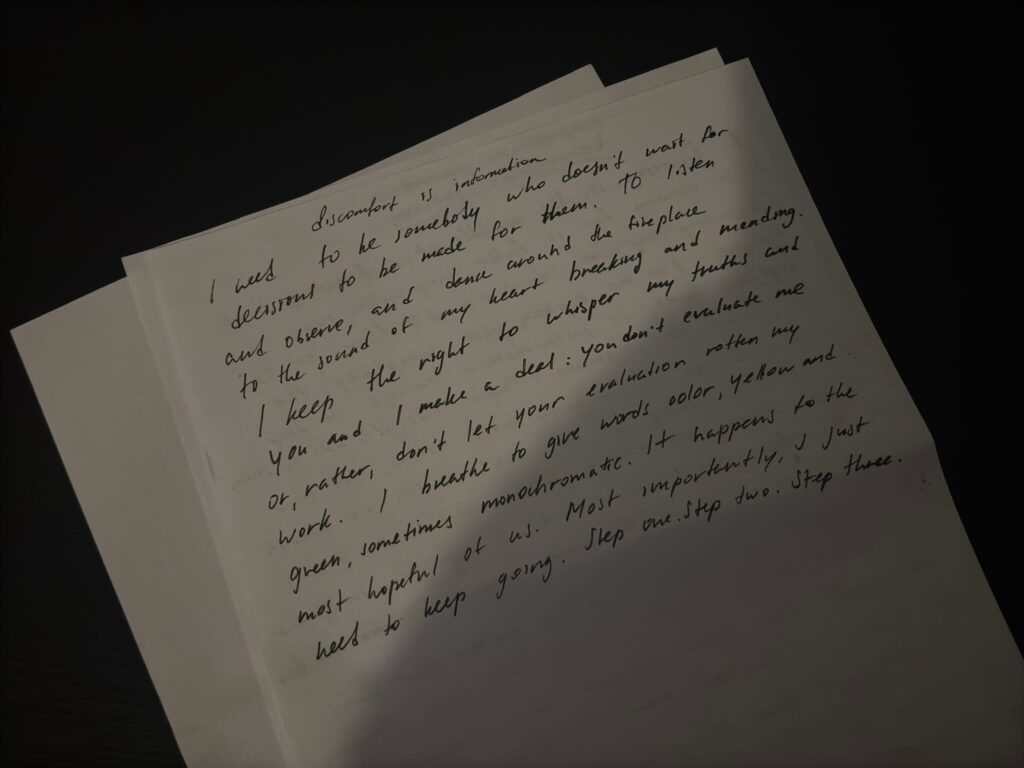 discomfort is information
I need to be somebody who doesn't wait for
decisions to be made for them. To listen
and observe, and dance around the fireplace
to the sound of my heart breaking and mending.
I keep the right to whisper my truths and
you and I make a deal: you don't evaluate me
or, rather, don't let your evaluation rotten my
work. I breathe to give words color, yellow and
green, sometimes monochromatic. It happens to the
most hopeful of us. Most importantly, I just
need to keep going. Step one. Step two. Step three.